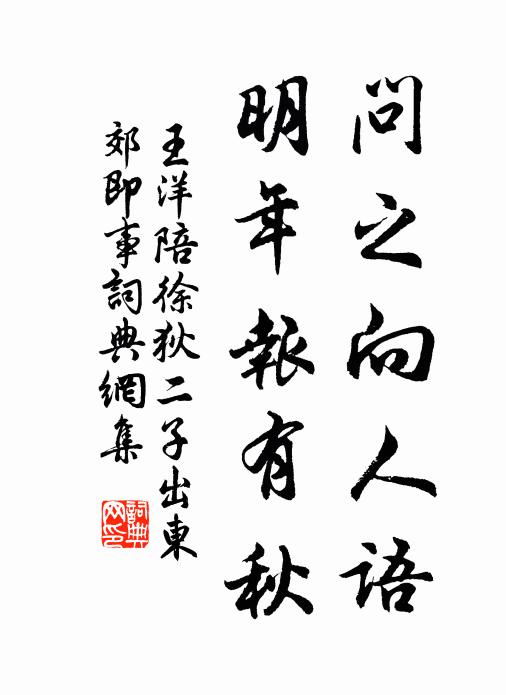 問之向人語
明年報有秋
王洋陪徐狄二子出東
郊即事詞典網集
詞典
网印